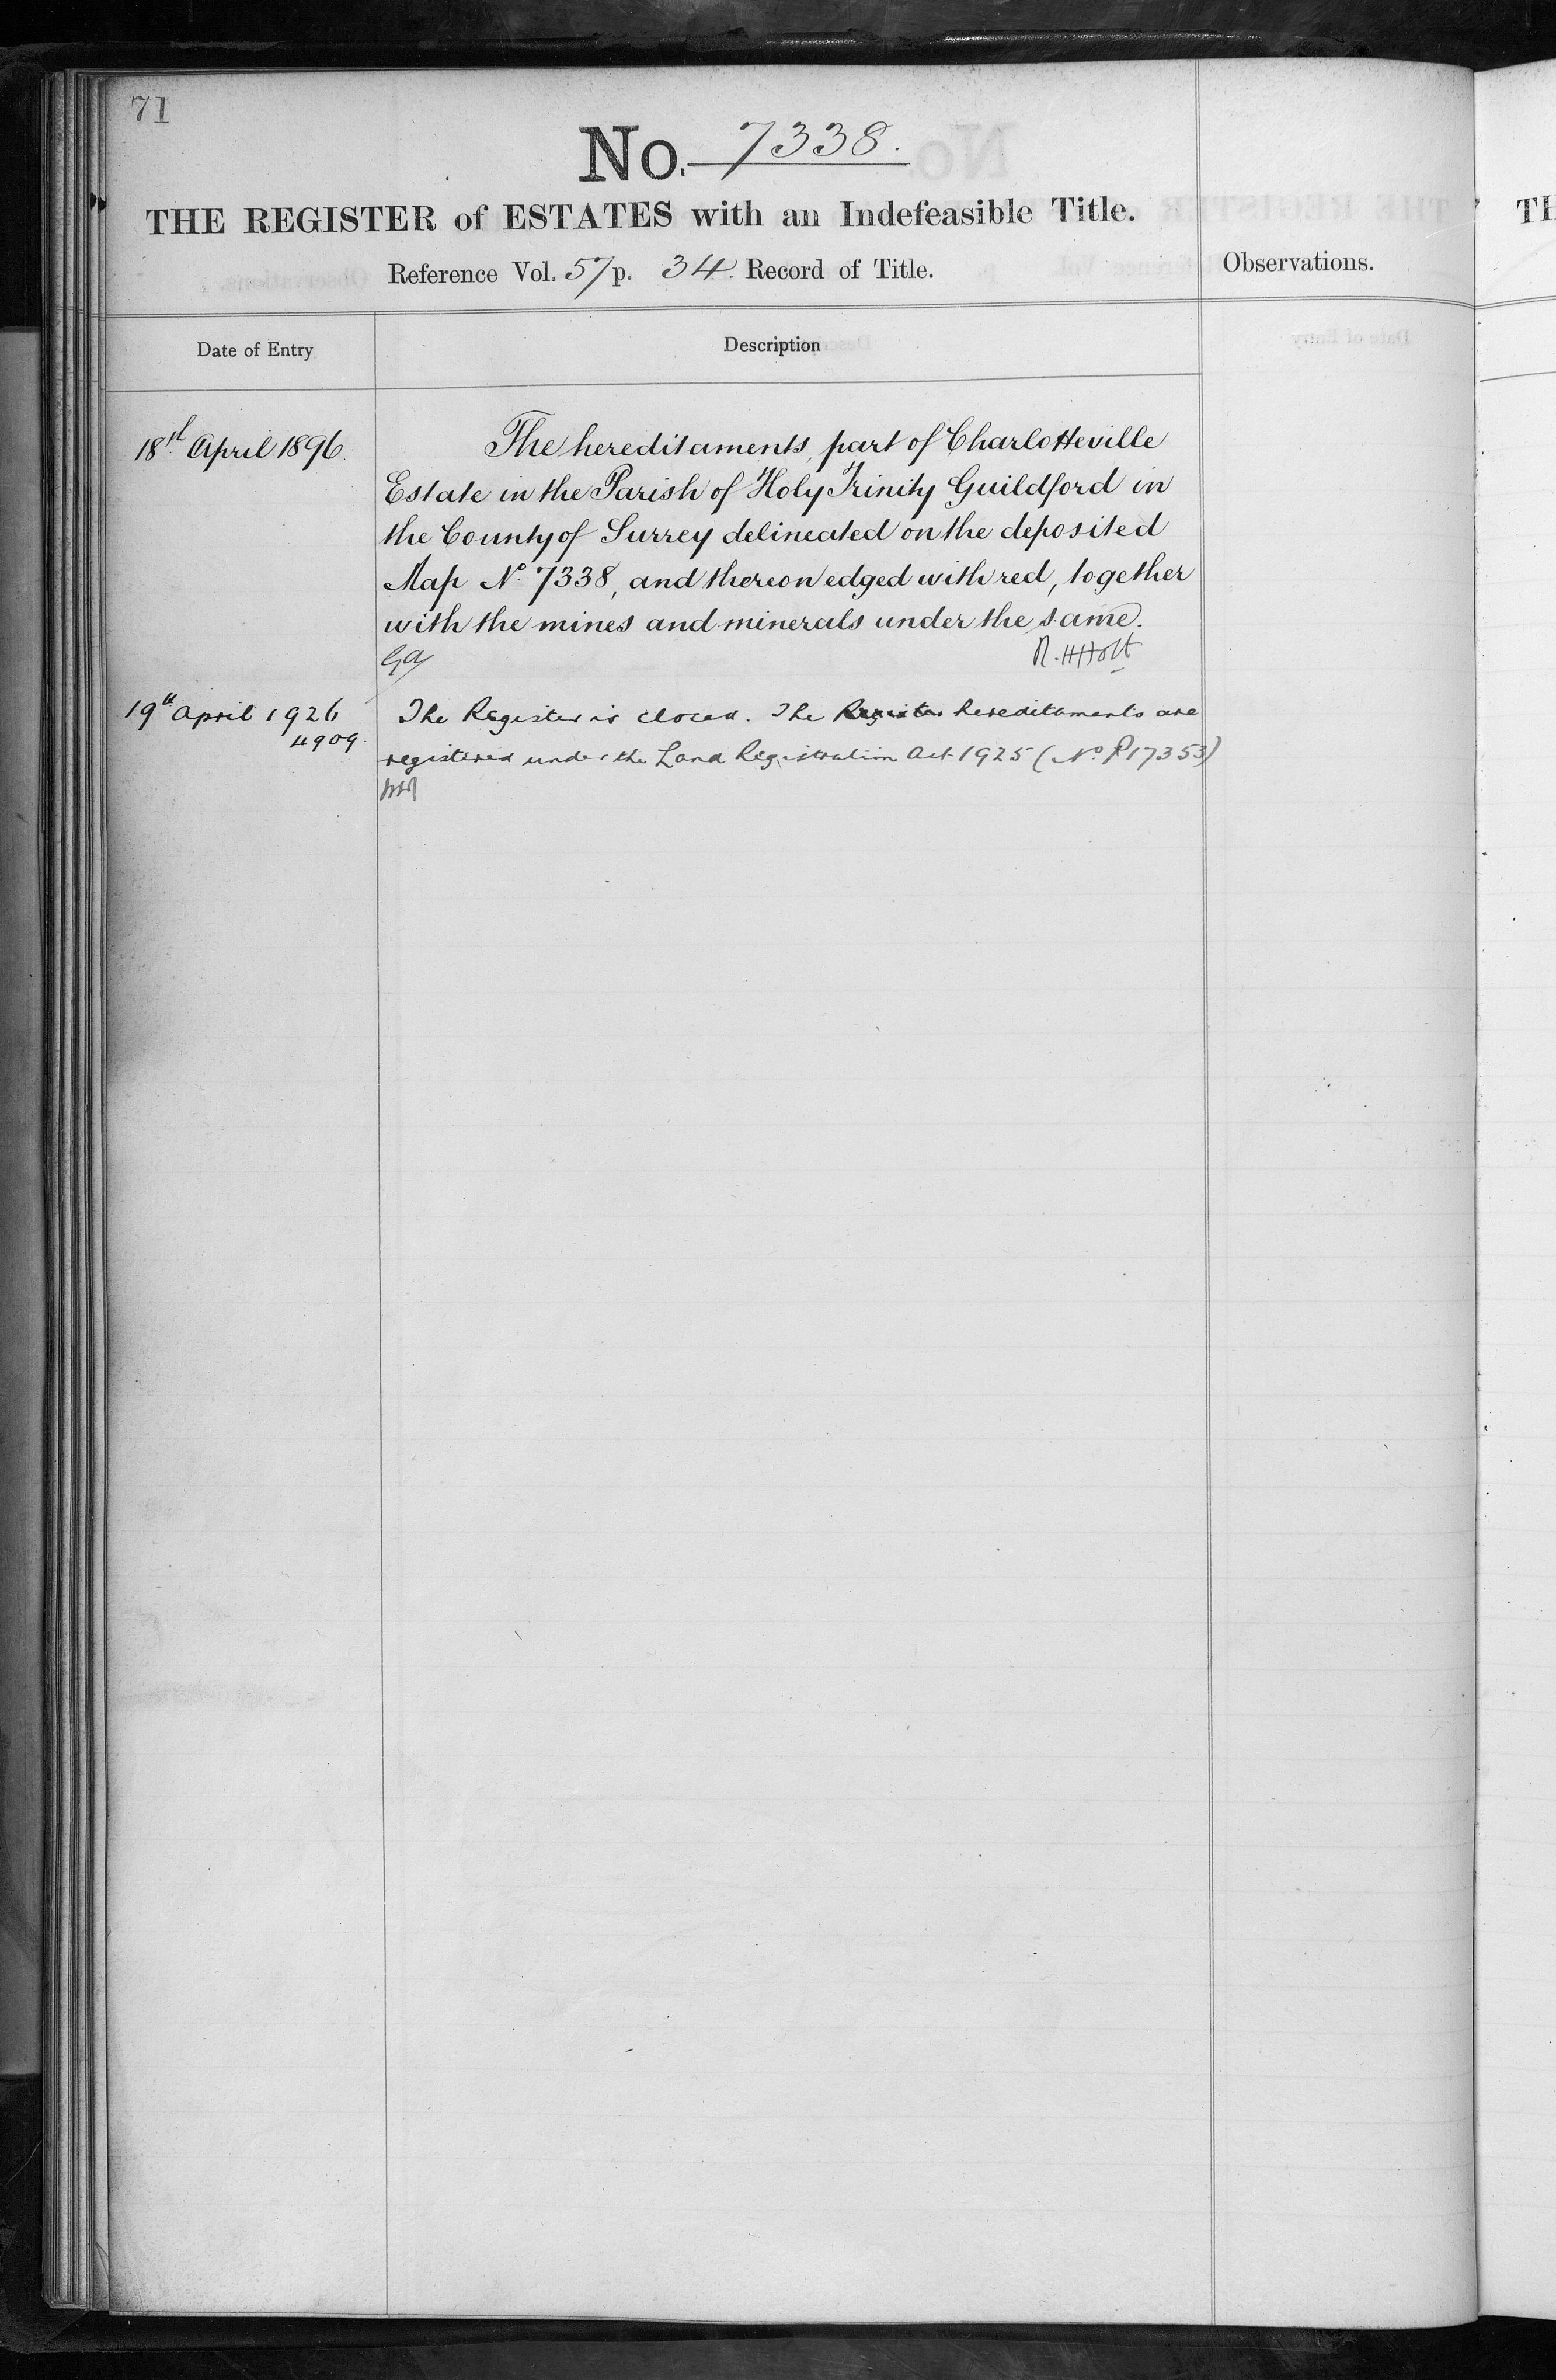 71
No. 7338.
THE REGISTER of ESTATES with an Indefeasible Title.
Reference Vol. 57 p. 34. Record of Title.
Observations.
Date of Entry
Description
18th April 1896.
The hereditaments, part of Charlotteville
Estate in the Parish of Holy Trinity Guildford in
the County of Surrey delineated on the deposited
Map No. 7338, and thereon edged with red, together
with the mines and minerals under the same.
R. H Holt
19th April 1926
4909
The Register is closed. The Register hereditaments are
registered under the Land Registration Act 1925 (No. P17353)
TH